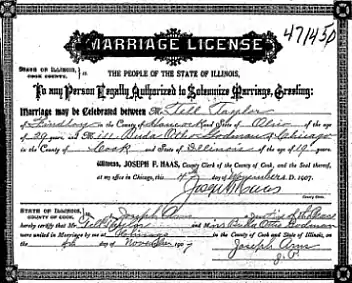 471450
MARRIAGE LICENSE
STATE OF ILLINOIS, COOK COUNTY. } ss.
THE PEOPLE OF THE STATE OF ILLINOIS,
To any Person Legally Authorized to Solemnize Marriage, Greeting:
Marriage may be Celebrated between Mr. Tell Taylor
of Findlay in the County of Hancock and State of Ohio of the age
of 29 years and M iss Buda Otto Bodman of Chicago
in the County of Cook and State of Illinois of the age of 19 years
Witness, JOSEPH F. HAAS, County Clerk of the County of Cook, and the Seal thereof,
at my office in Chicago, this day of November A. D. 1907.
Joseph F Haas
County Clerk.
STATE OF ILLINOIS, COUNTY OF COOK. } ss. I, Joseph a Justice of the Peace
hereby certify that Mr. Tell Taylor and Miss Buda Otto Bodman
were united in Marriage by me at Chicago in the County of Cook and State of Illinois, on
the day of November 1907
Joseph
J.P.